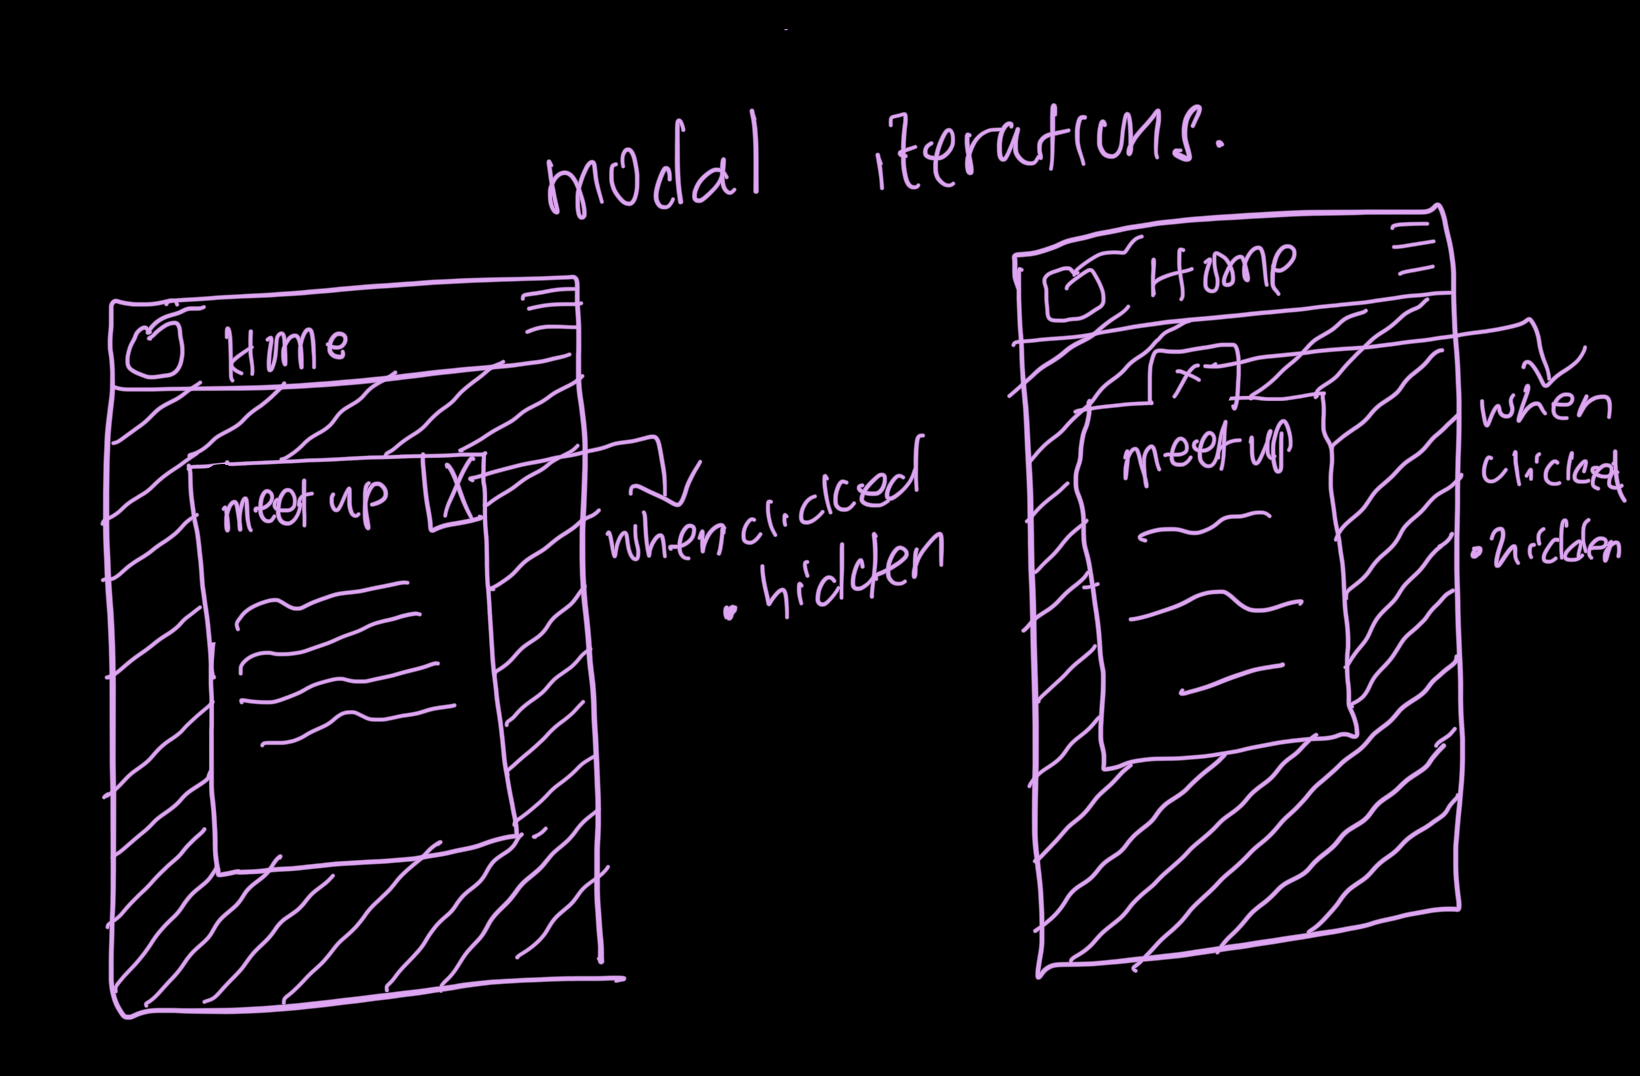 modal iterations.
Home
meet up X
when clicked
• hidden
Home
X
meet up
when
clicked
• hidden